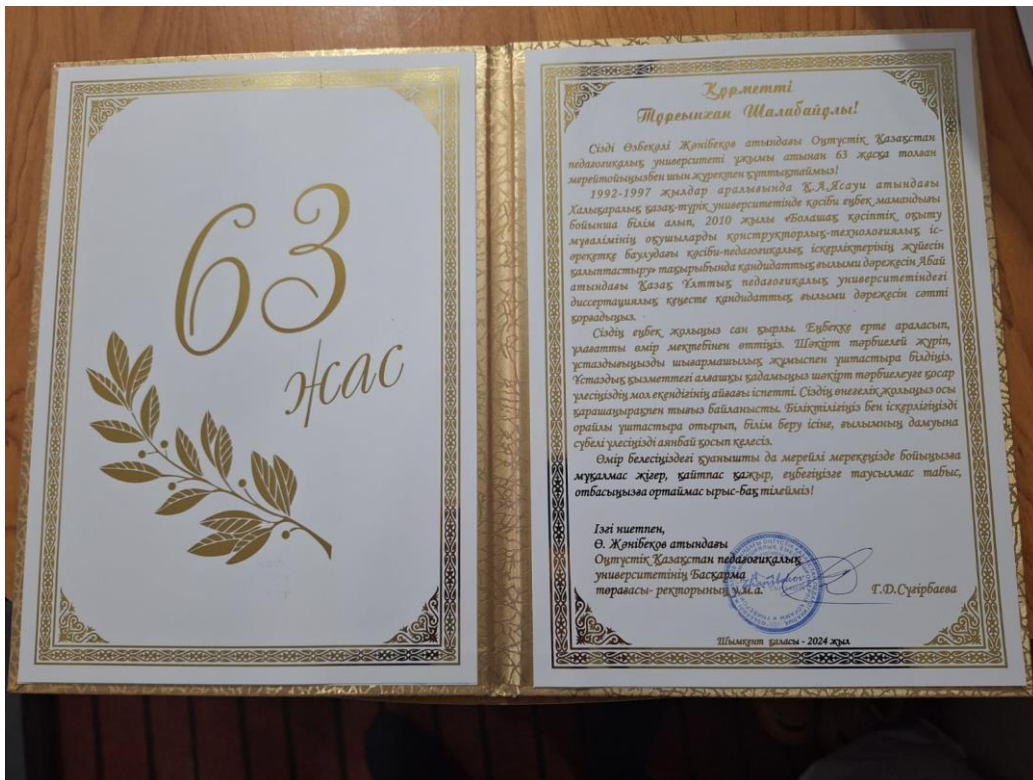 63
жас
Құрметті
Тұрсынхан Шалабайұлы!
Сізді Өзбекәлі Жәнібеков атындағы Оңтүстік Қазақстан
педагогикалық университеті ұжымы атынан 63 жасқа толған
мерейтойыңызбен шын жүректен құттықтаймыз!
1992-1997 жылдар аралығында Қ.А.Ясауи атындағы
Халықаралық қазақ-түрік университетінде кәсіби еңбек мамандығы
бойынша білім алып, 2010 жылы «Болашақ кәсіптік оқыту
мұғалімінің оқушыларды конструкторлық-технологиялық іс-
әрекетке баулудағы кәсіби-педагогикалық іскерліктерінің жүйесін
қалыптастыру» тақырыбында кандидаттық ғылыми дәрежесін Абай
атындағы Қазақ Ұлттық педагогикалық университетіндегі
диссертациялық кеңесте кандидаттық ғылыми дәрежесін сәтті
қорғадыңыз.
Сіздің еңбек жолыңыз сан қырлы. Еңбекке ерте араласып,
ұлағатты өмір мектебінен өттіңіз. Шәкірт тәрбиелей жүріп,
ұстаздығыңызды шығармашылық жұмыспен ұштастыра білдіңіз.
Ұстаздық қызметтегі алғашқы қадамыңыз шәкірт тәрбиелеуге қосар
үлесіңіздің мол екендігінің айғағы іспетті. Сіздің өнегелік жолыңыз осы
қарашаңырақпен тығыз байланысты. Біліктілігіңіз бен іскерлігіңізді
орайлы ұштастыра отырып, білім беру ісіне, ғылымның дамуына
сүбелі үлесіңізді аянбай қосып келесіз.
Өмір белесіңіздегі қуанышты да мерейлі мерекеңізде бойыңызға
мұқалмас жігер, қайтпас қажыр, еңбегіңізге таусылмас табыс,
отбасыңызға ортаймас ырыс-бақ тілейміз!
Ізгі ниетпен,
Ө. Жәнібеков атындағы
Оңтүстік Қазақстан педагогикалық
университетінің Басқарма
төрағасы- ректорының у.м.а.
Г.Д.Сүгірбаева
Шымкент қаласы - 2024 жыл